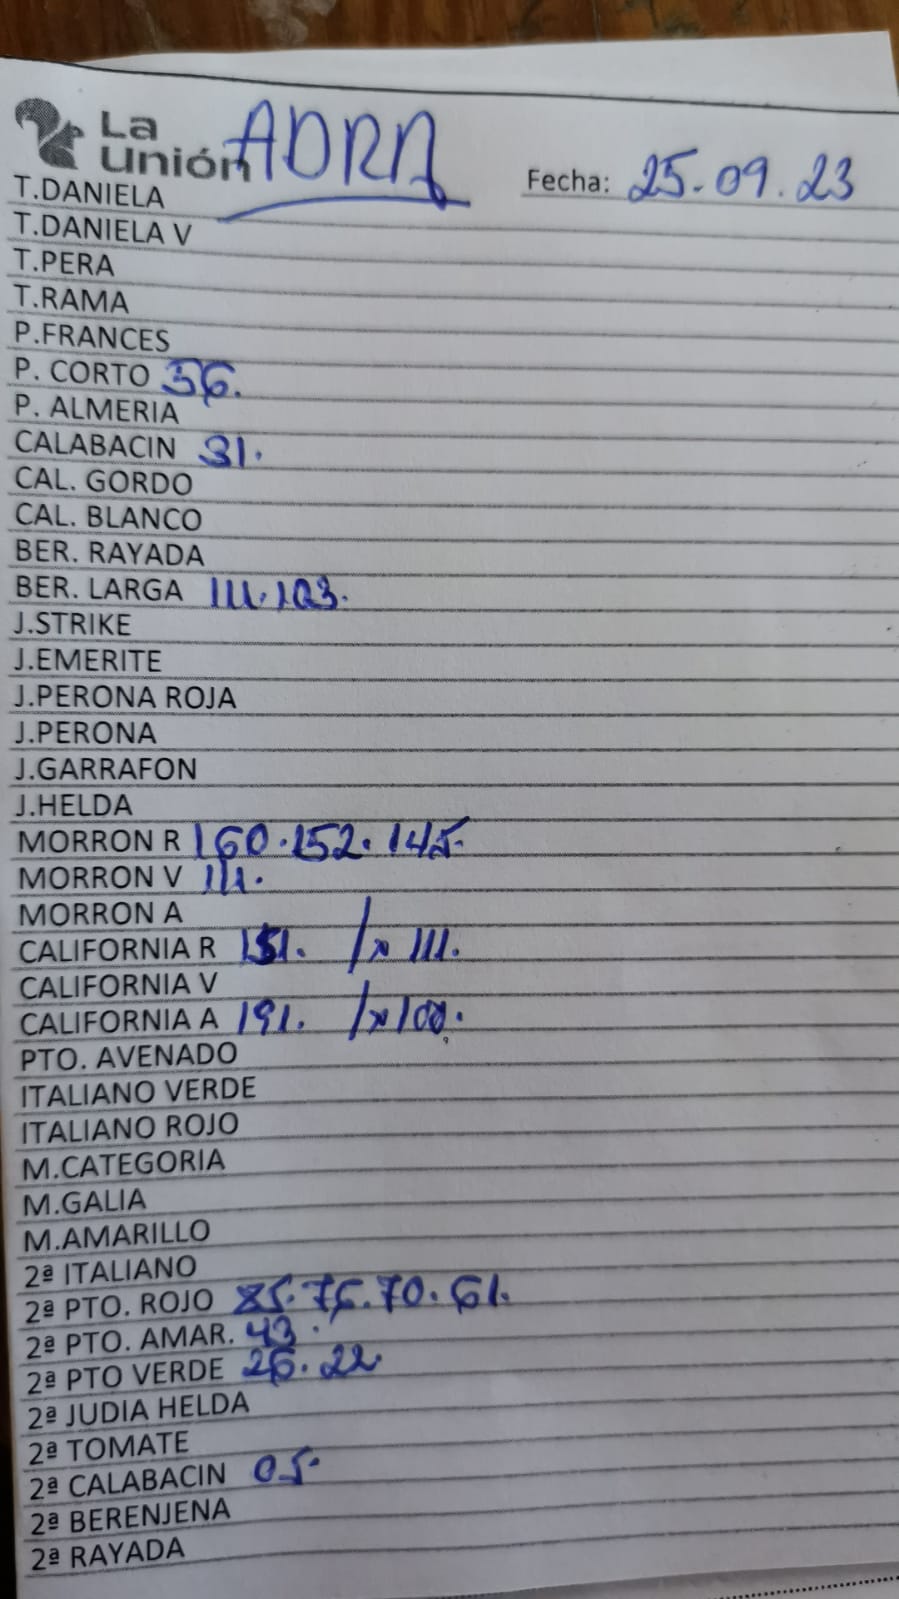 La Unión ADRA Fecha: 25.09.23
T.DANIELA
T.DANIELA V
T.PERA
T.RAMA
P.FRANCES
P. CORTO 36.
P. ALMERIA
CALABACIN 31.
CAL. GORDO
CAL. BLANCO
BER. RAYADA
BER. LARGA 111.103.
J.STRIKE
J.EMERITE
J.PERONA ROJA
J.PERONA
J.GARRAFON
J.HELDA
MORRON R 160.152.145.
MORRON V 111.
MORRON A
CALIFORNIA R 151. / x 111.
CALIFORNIA V
CALIFORNIA A 191. / x
PTO. AVENADO
ITALIANO VERDE
ITALIANO ROJO
M.CATEGORIA
M.GALIA
M.AMARILLO
2ª ITALIANO
2ª PTO. ROJO 85.76.70.61.
2ª PTO. AMAR. 43.
2ª PTO VERDE 26.22.
2ª JUDIA HELDA
2ª TOMATE
2ª CALABACIN 05.
2ª BERENJENA
2ª RAYADA